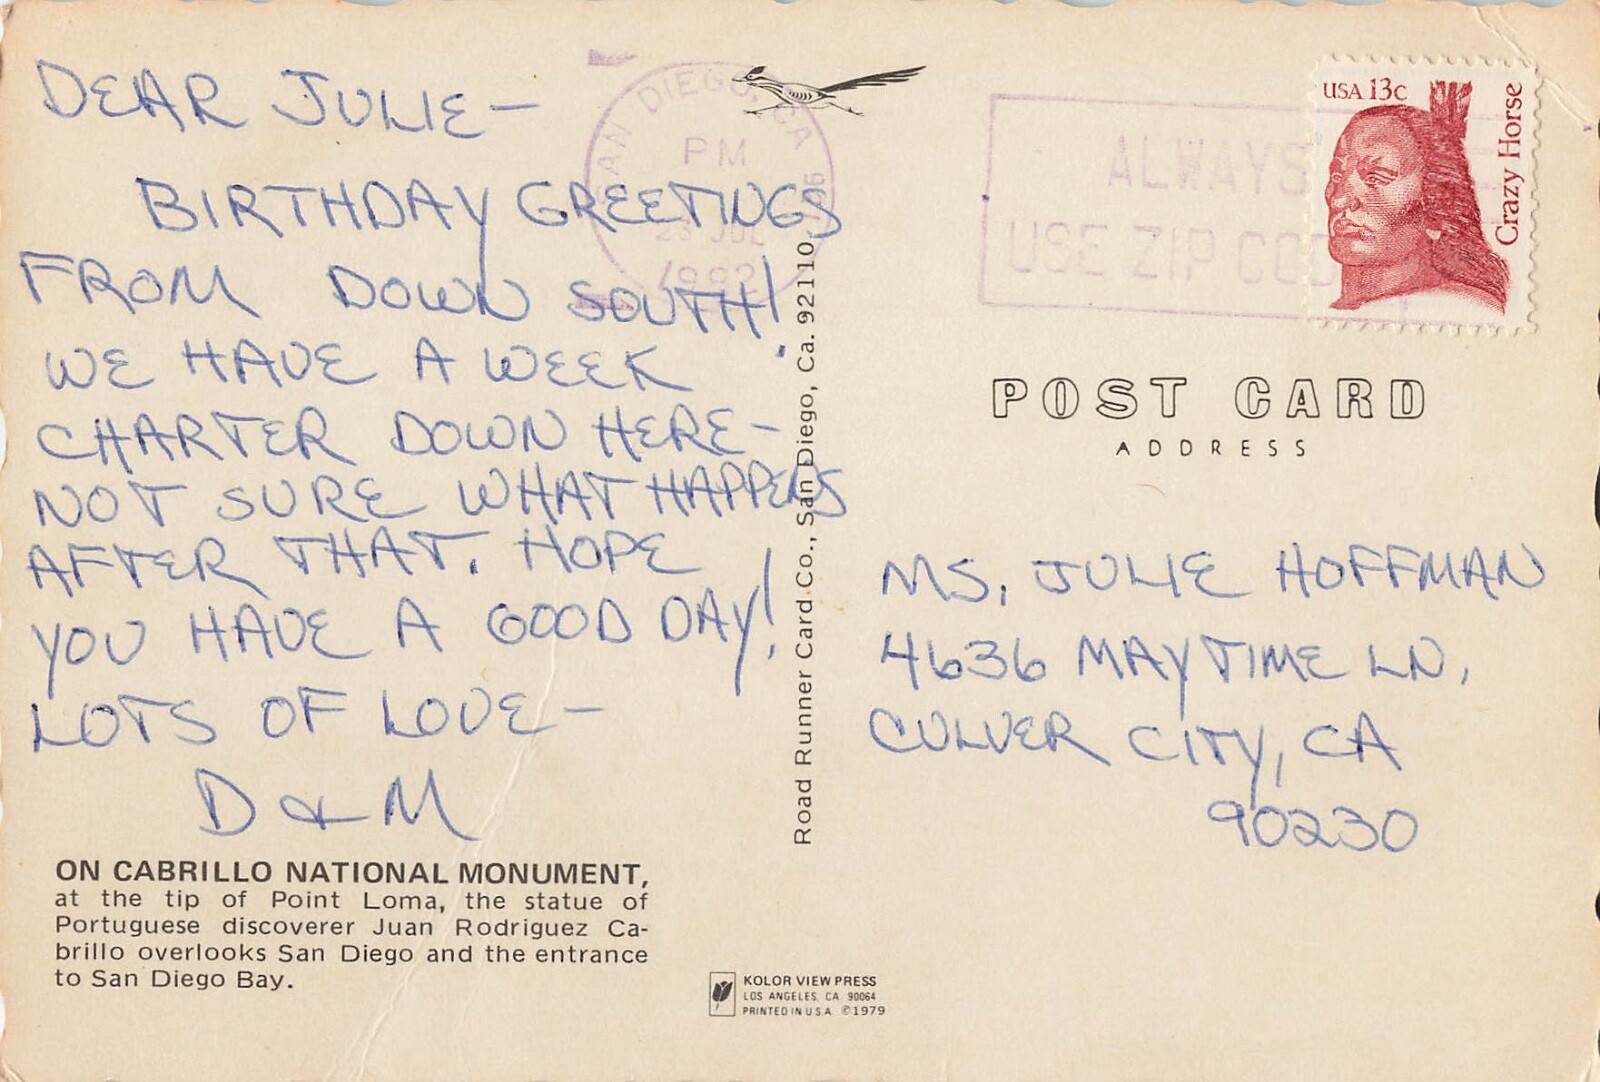 DEAR JULIE—
BIRTHDAY GREETINGS
FROM DOWN SOUTH!
WE HAVE A WEEK
CHARTER DOWN HERE—
NOT SURE WHAT HAPPENS
AFTER THAT. HOPE
YOU HAVE A GOOD DAY!
LOTS OF LOVE—
D & M
ON CABRILLO NATIONAL MONUMENT,
at the tip of Point Loma, the statue of
Portuguese discoverer Juan Rodriguez Ca-
brillo overlooks San Diego and the entrance
to San Diego Bay.
SAN DIEGO, CA
PM
1982
Road Runner Card Co., San Diego, Ca. 92110
KOLOR VIEW PRESS
LOS ANGELES, CA 90064
PRINTED IN U.S.A. ©1979
ALWAYS
USE ZIP COD
USA 13c
Crazy Horse
POST CARD
ADDRESS
MS. JULIE HOFFMAN
4636 MAYTIME LN,
CULVER CITY, CA
90230